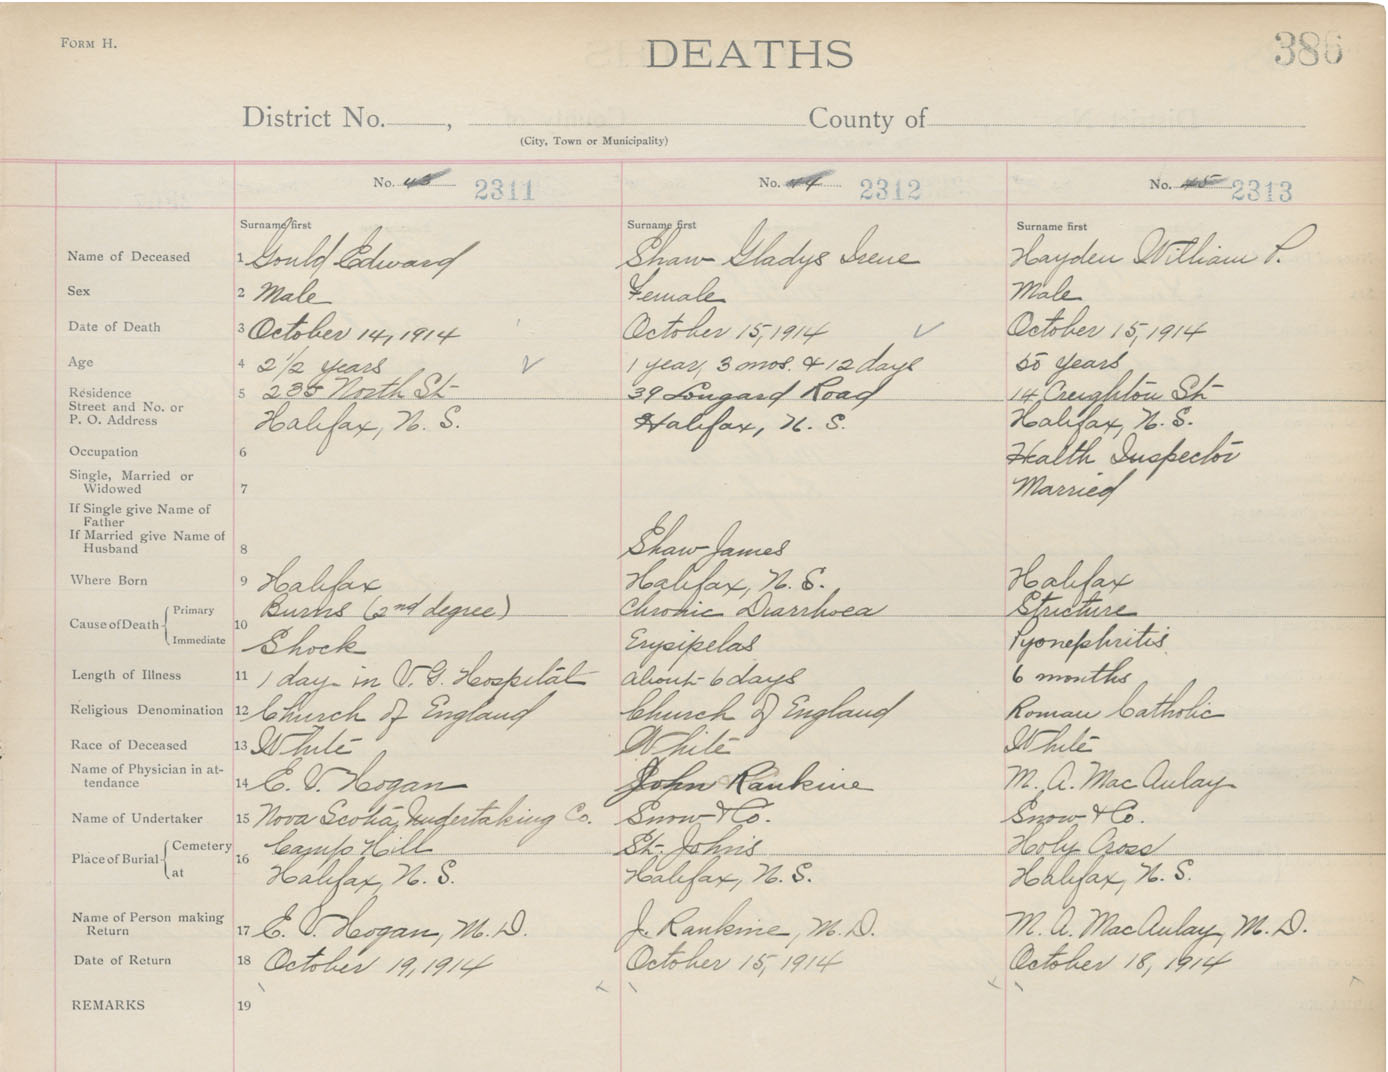 FORM H.
DEATHS
386
District No. , County of
(City, Town or Municipality)
No. 43 2311 No. 44 2312 No. 45 2313
Surname first Surname first Surname first
Name of Deceased 1 Gould Edward Shaw Gladys Irene Hayden William P.
Sex 2 Male Female Male
Date of Death 3 October 14, 1914 October 15, 1914 October 15, 1914
Age 4 2 1/2 years 1 year, 3 mos. & 12 days 50 years
Residence
Street and No. or 5 235 North St 39 Longard Road 14 Creighton St
P. O. Address Halifax, N. S. Halifax, N. S. Halifax, N. S.
Occupation 6 Health Inspector
Single, Married or
Widowed 7 Married
If Single give Name of
Father
If Married give Name of
Husband 8 Shaw James
Where Born 9 Halifax Halifax, N. S. Halifax
Cause of Death Primary 10 Burns (2nd degree) Chronic Diarrhoea Stricture
Immediate Shock Erysipelas Pyonephritis
Length of Illness 11 1 day in V. G. Hospital about 6 days 6 months
Religious Denomination 12 Church of England Church of England Roman Catholic
Race of Deceased 13 White White White
Name of Physician in at-
tendance 14 E. V. Hogan John Rankine M. A. MacAulay
Name of Undertaker 15 Nova Scotia Undertaking Co. Snow & Co. Snow & Co.
Place of Burial Cemetery 16 Camp Hill St. Johns Holy Cross
at Halifax, N. S. Halifax, N. S. Halifax, N. S.
Name of Person making
Return 17 E. V. Hogan, M. D. J. Rankine, M. D. M. A. MacAulay, M. D.
Date of Return 18 October 19, 1914 October 15, 1914 October 18, 1914
REMARKS 19